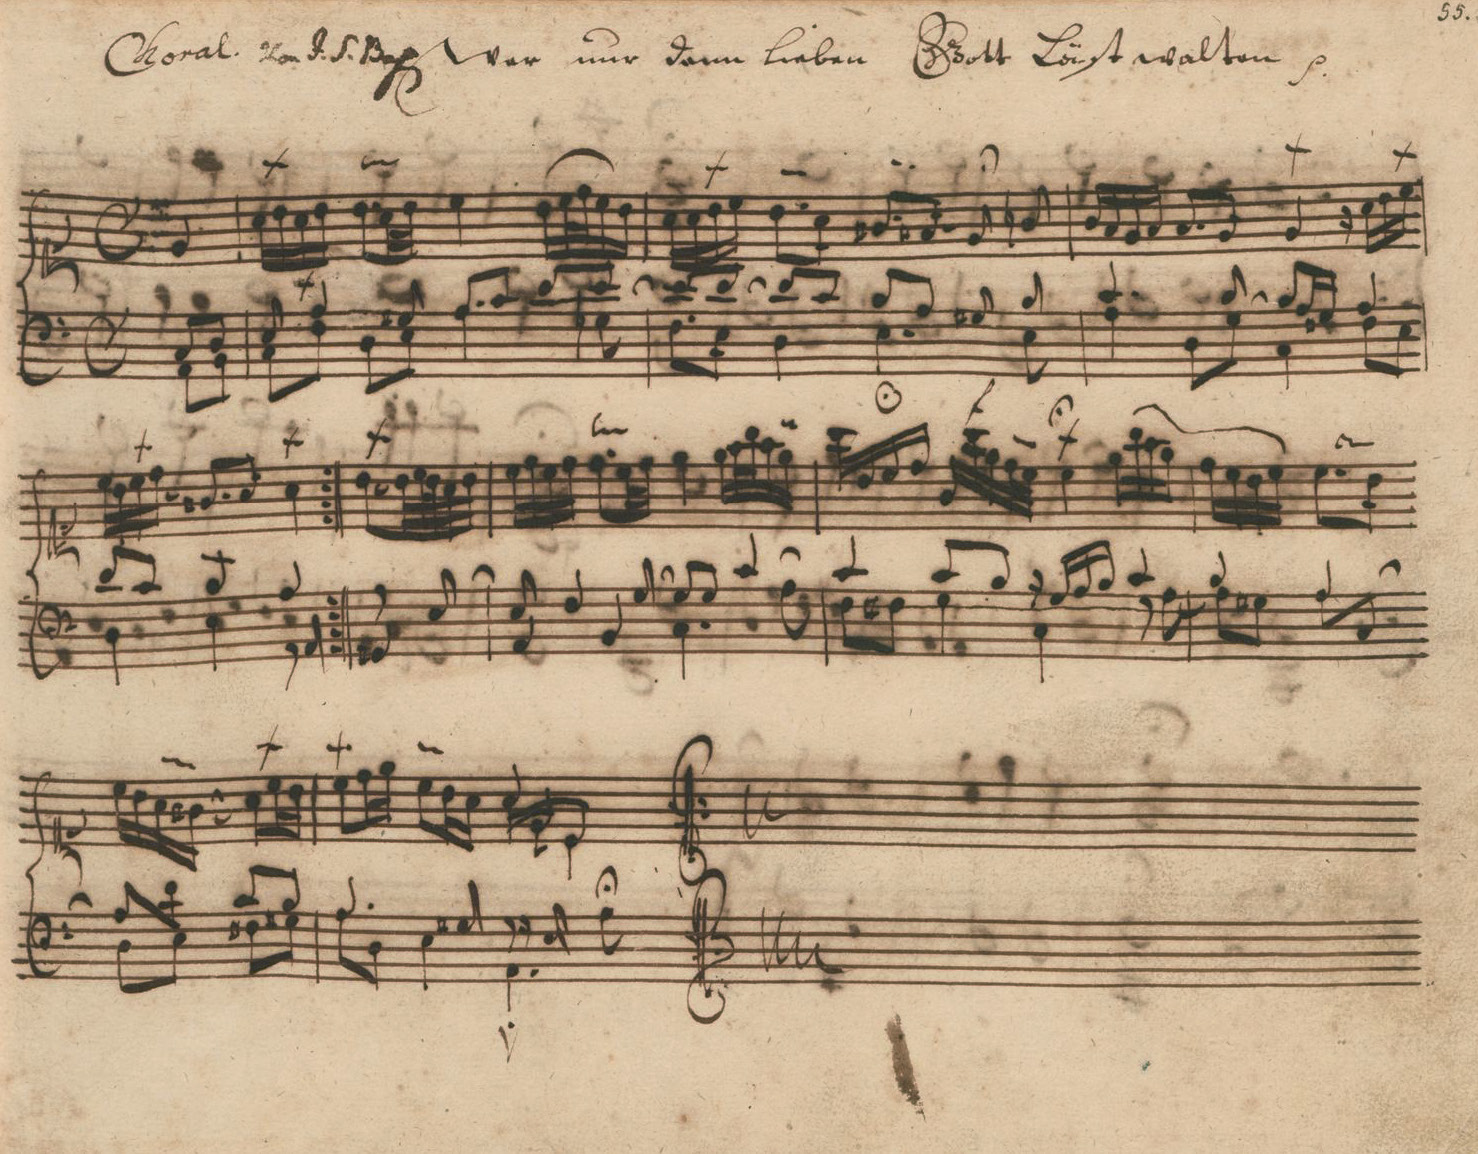 55.
Choral. Von J. S. Bach Wer nur den lieben Gott Läst walten p.